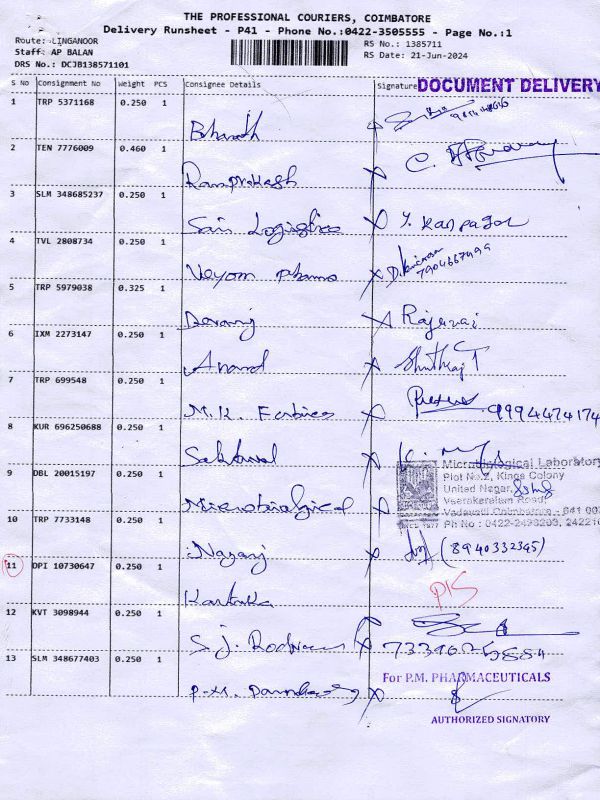 THE PROFESSIONAL COURIERS, COIMBATORE
Delivery Runsheet - P41 - Phone No.:0422-3505555 - Page No.:1
Route: LINGANOOR
Staff: AP BALAN
DRS No.: DCJB138571101
RS No.: 1385711
RS Date: 21-Jun-2024
S No Consignment No Weight PCS Consignee Details Signature
DOCUMENT DELIVERY
1 TRP 5371168 0.250 1 Bharath
2 TEN 7776009 0.460 1 Ramprakash
3 SLM 348685237 0.250 1 Sain Logistics
4 TVL 2808734 0.250 1 pharma
7904667999
5 TRP 5979038 0.325 1
6 IXM 2273147 0.250 1 Anand
7 TRP 699548 0.250 1 M.K. Fabrics
9994474174
8 KUR 696250688 0.250 1
Microbiological Laboratory
Plot No.2, Kings Colony
United Nagar,
Veerakeralam Road,
Vadavalli Coimbatore - 641 00
Ph No : 0422-2493203, 24221
SINCE 1977
9 DBL 20015197 0.250 1 Microbiological
10 TRP 7733148 0.250 1 Nagaraj
(8940332345)
11 DPI 10730647 0.250 1 Kartika
12 KVT 3098944 0.250 1 S. J.
13 SLM 348677403 0.250 1 P.M.
For P.M. PHARMACEUTICALS
AUTHORIZED SIGNATORY